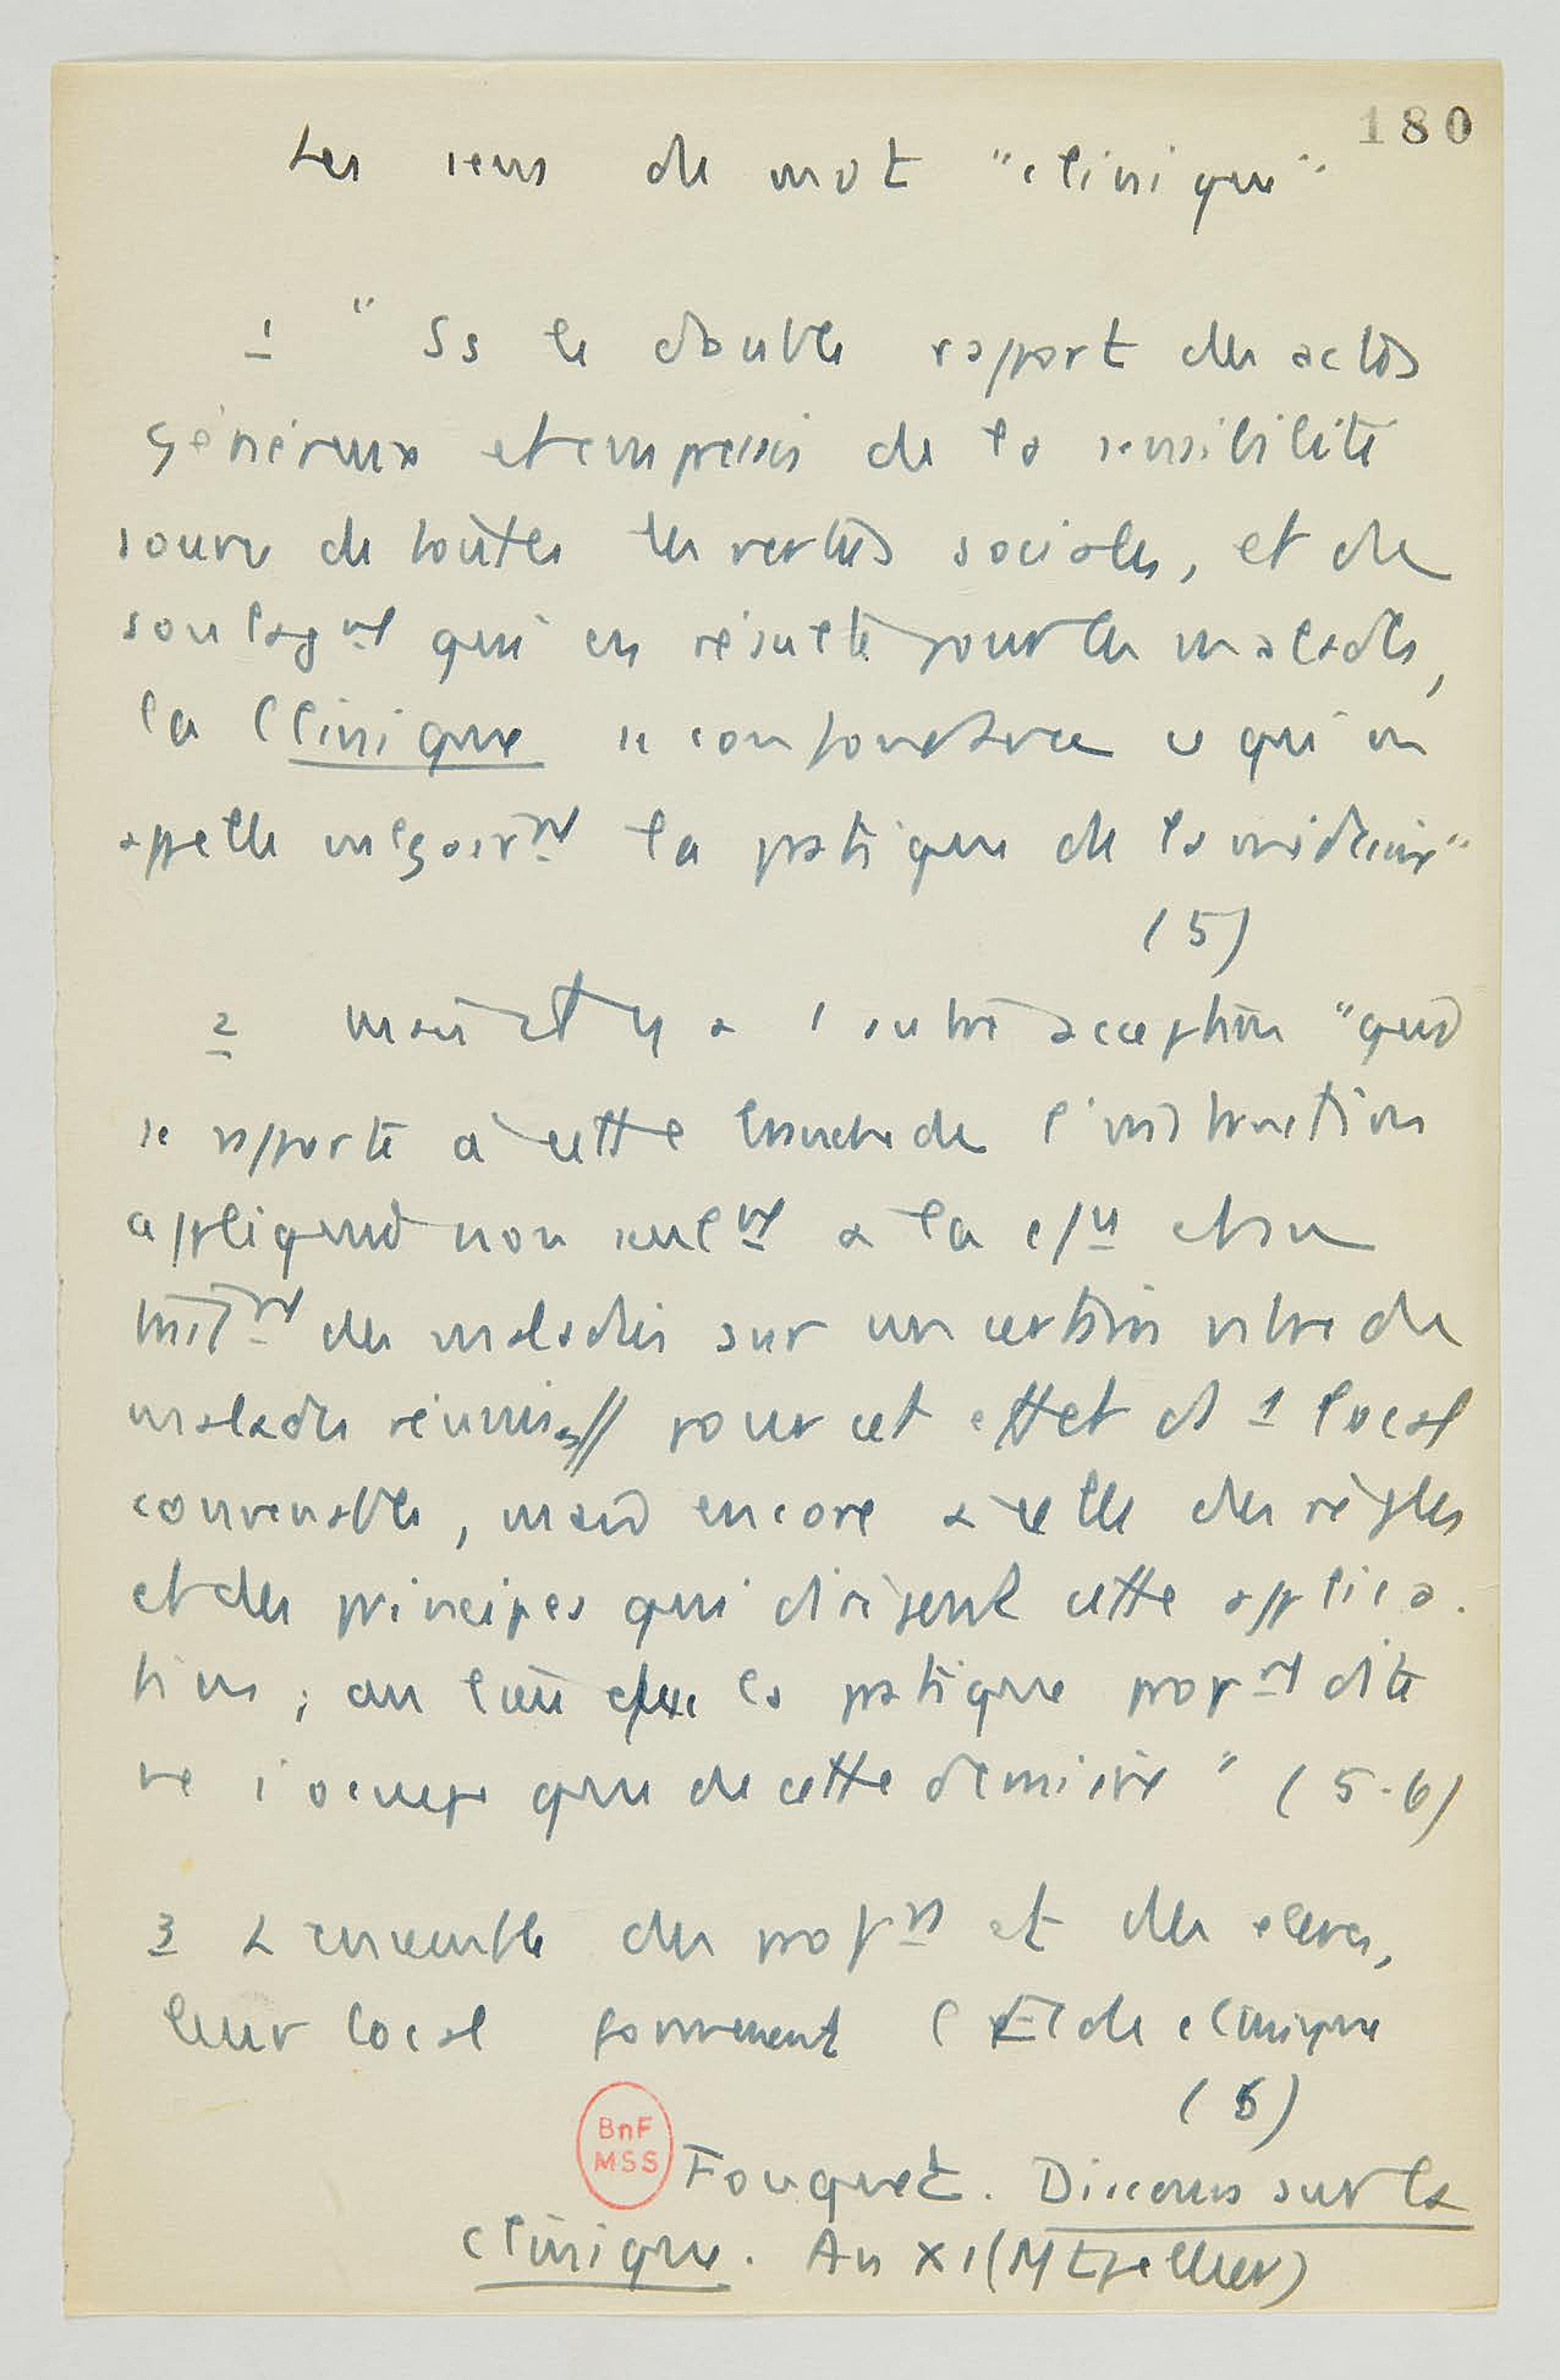 180
Les sens du mot "clinique"
1 " Ss le double rapport des actes
généreux et empressés de la sensibilité
source de toutes les vertus sociales, et du
soulagnt qui en résulte pour les malades,
la Clinique se confond avec ce qu'on
appelle vulgairnt la pratique de la médecine"
(5)
2 mais il y a 1 autre acception "qui
se rapporte à cette branche de l'instruction
appliquée non seulnt à la et au
des maladies sur un certain nbre de
malades réunis pour cet effet ds 1 local
convenable, mais encore à celle des règles
et des principes qui dirigent cette applica-
tion ; au lieu que la pratique propnt dite
ne s'occupe que de cette dernière " (5-6)
3 L'ensemble des profrs et des élèves,
leur local forment l' de clinique
(6)
BnF
MSS
Fouquet. Discours sur la
clinique. An XI (Mtpellier)